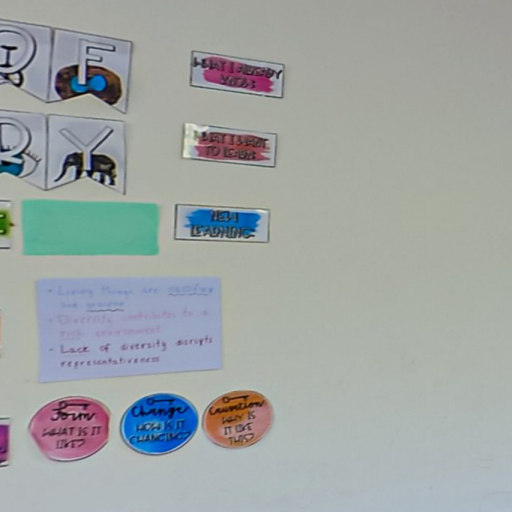 I F
R Y
WHAT I ALREADY
KNOW:
WHAT I WANT
TO LEARN:
NEW
LEARNING-
- Living things are classified
into groups
- Diversity contributes to a
rich environment
- Lack of diversity disrupts
representativeness
Form
WHAT IS IT
LIKE?
Change
HOW IS IT
CHANGING?
Causation
WHY IS
IT LIKE
THIS?